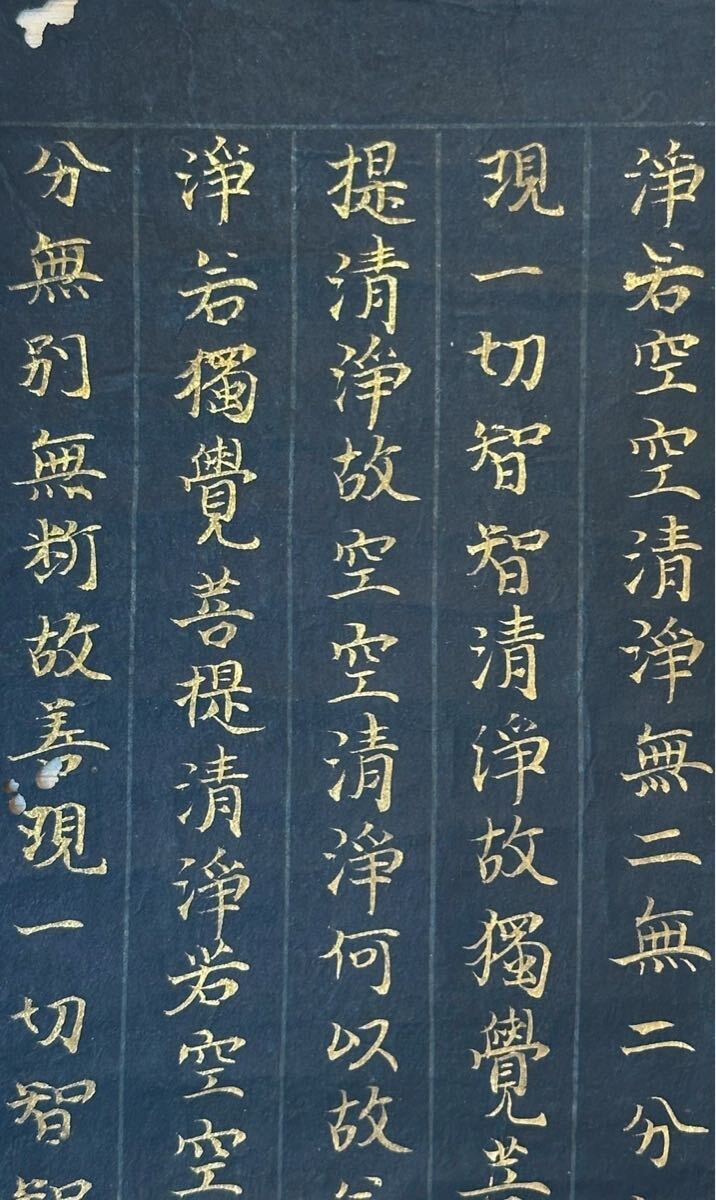 淨若空空清淨無二無二分
現一切智智清淨故獨覺菩
提清淨故空空清淨何以故
淨若獨覺菩提清淨若空空
分無別無斷故善現一切智智